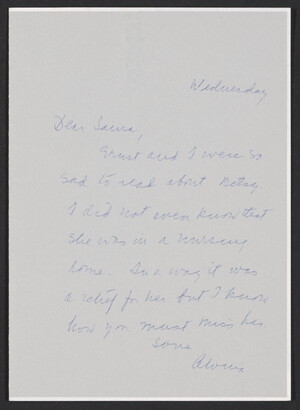 Wednesday
Dear Laura,
Ernst and I were so
sad to read about Betsy.
I did not even know that
she was in a nursing
home. In a way it was
a relief for her but I know
how you must miss her
Love